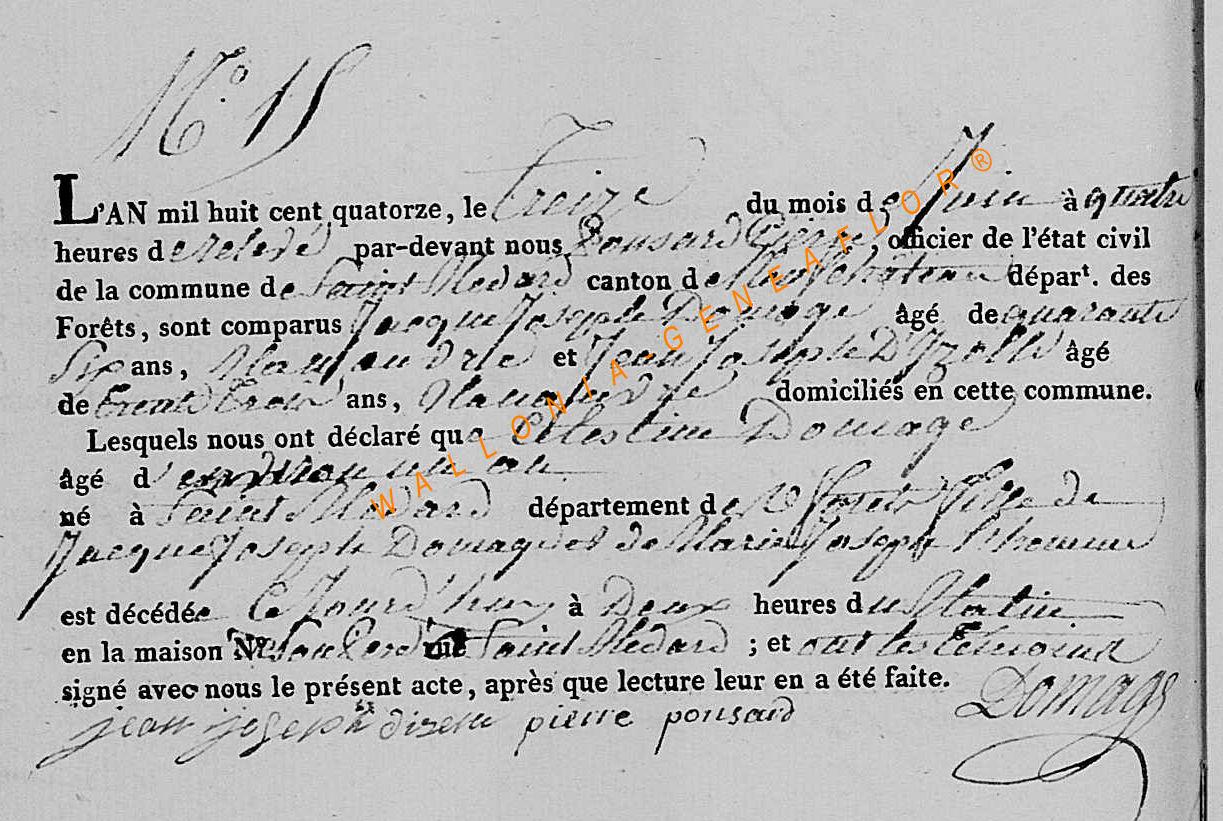 N.° 15
L'AN mil huit cent quatorze, le Treize du mois de Juin à quatre
heures de relevé par-devant nous Ponsard Pierre, officier de l'état civil
de la commune de Saint Medard canton de Neufchateau départ. des
Forêts, sont comparus Jacque Joseph Domage âgé de quarante
Six ans, et Jean Joseph D'Izelle âgé
de trente trois ans, domiciliés en cette commune.
Lesquels nous ont déclaré que Celestine Domage
âgé d'environ un an
né à Saint Medard département des forets fille de
Jacque Joseph Domage et de Marie Joseph
est décédée Ce Jourd'huy à Deux heures du Matin
en la maison Saint Medard ; et ont les temoins
signé avec nous le présent acte, après que lecture leur en a été faite.
Domage
jean joseph dizelle pierre ponsard
WALLONIA-GENEAFLOR®